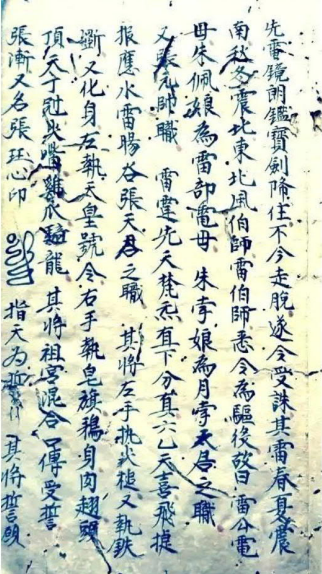 先雷鏡朗鑑寶劍降住不令走脫逐令受誅其雷春夏震
南秋冬震北東北風伯師雷伯師悉令為驅後故曰雷公電
母朱佩娘為雷部電母 朱孛娘為月孛天君之職
又張元帥職 雷霆先天梵炁直下分真六乙天喜飛捷
报應水雷暘谷張天君之職 其將左手执火槌又執鉄
斵又化身左執天皇號令右手執皂旗鴉身肉翅頭
頂天丁冠火嘴雞爪騎龍 其將祖宮混合 傳受誓
張漸又名張珏心印 指天为誓 其將誓願